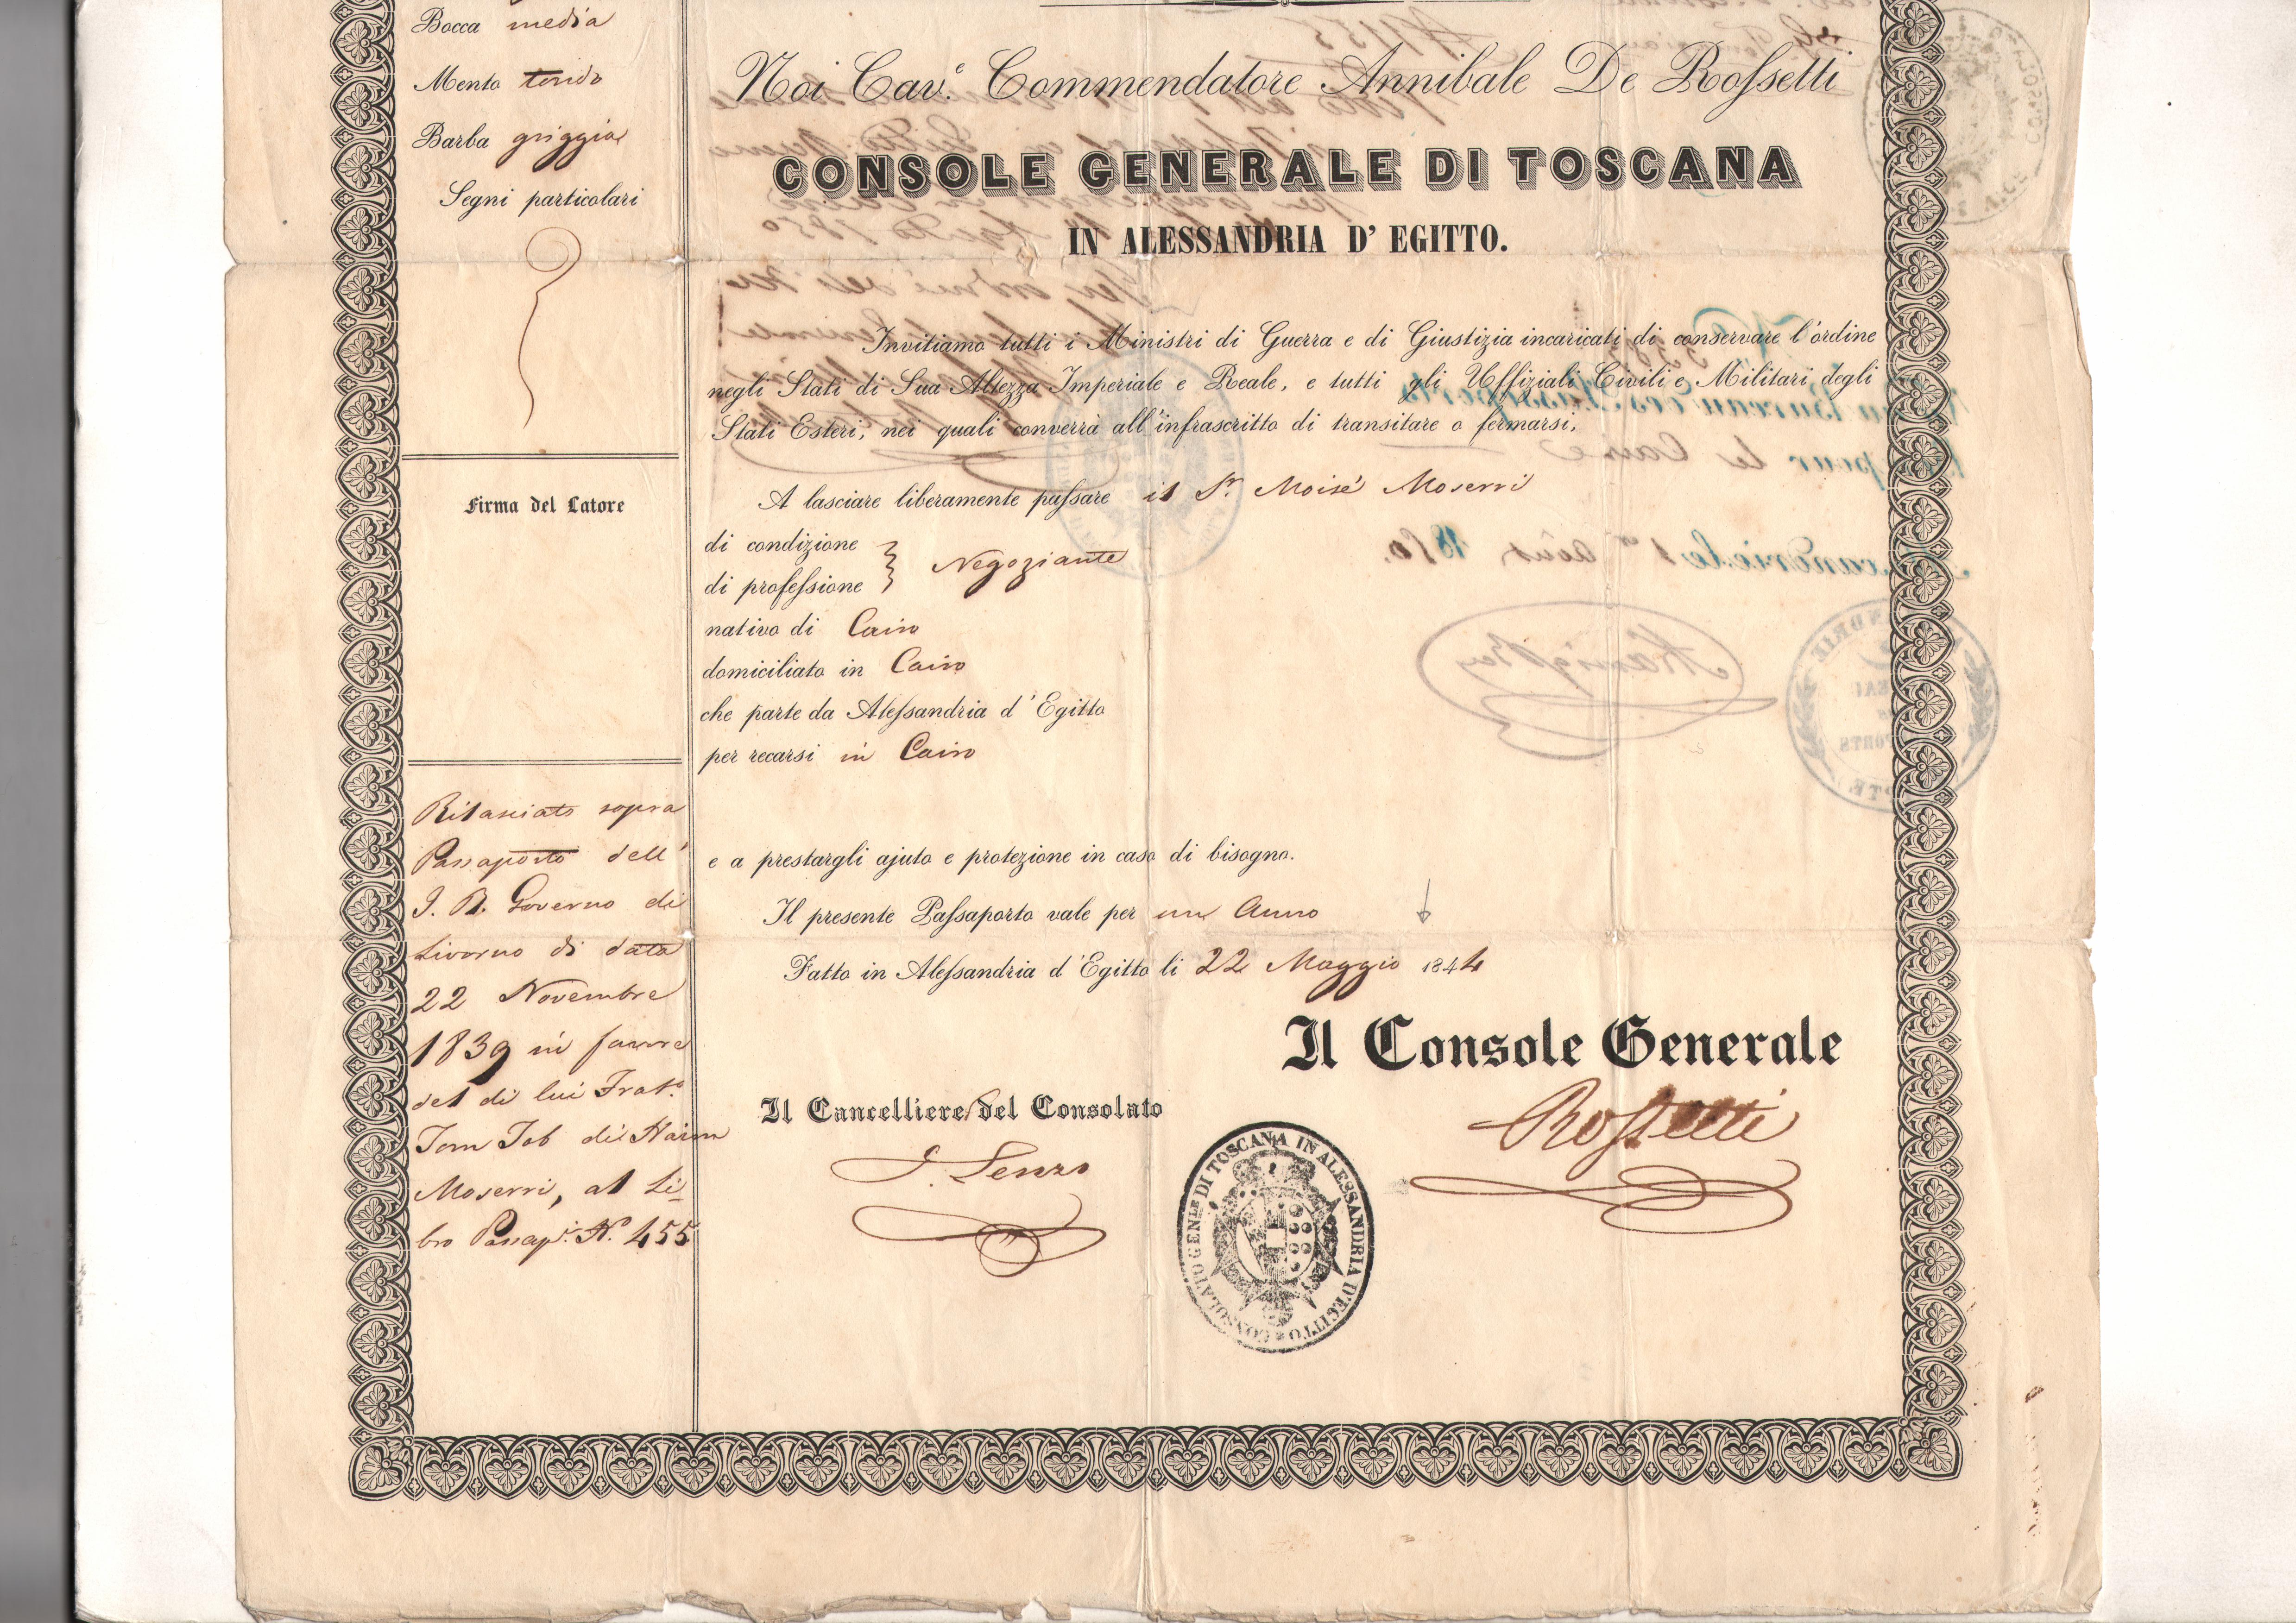 Bocca media
Mento tondo
Barba griggia
Segni particolari
Firma del Latore
Rilasciato sopra
Passaporto dell'
I. R. Governo di
Livorno di data
22 Novembre
1839 in favore
del di lui Frat.o
Tom Tob di Haim
Moserri, al Li-
bro Passap.i N.º 455
Noi Cav.e Commendatore Annibale De Rossetti
CONSOLE GENERALE DI TOSCANA
IN ALESSANDRIA D' EGITTO.
Invitiamo tutti i Ministri di Guerra e di Giustizia incaricati di conservare l'ordine
negli Stati di Sua Altezza Imperiale e Reale, e tutti gli Uffiziali Civili e Militari degli
Stati Esteri, nei quali converrà all'infrascritto di transitare o fermarsi,
A lasciare liberamente passare il S.r Moisè Moserri
di condizione
di professione } Negoziante
nativo di Cairo
domiciliato in Cairo
che parte da Alessandria d'Egitto
per recarsi in Cairo
e a prestargli ajuto e protezione in caso di bisogno.
Il presente Passaporto vale per un Anno
Fatto in Alessandria d'Egitto li 22 Maggio 1844
Il Console Generale
Rossetti
Il Cancelliere del Consolato
CONSOLATO GEN.LE DI TOSCANA IN ALESSANDRIA D'EGITTO